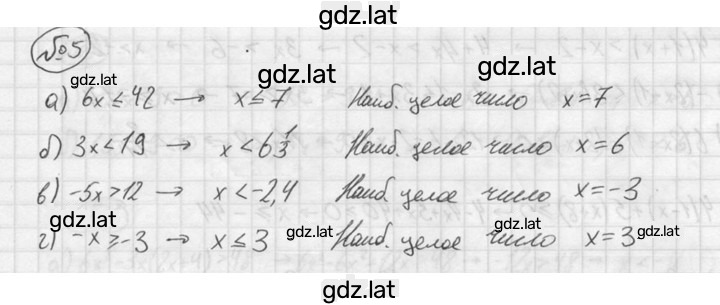 gdz.lat
№5
gdz.lat gdz.lat gdz.lat
а) 6x ≤ 42 → x ≤ 7 Наиб. целое число x = 7
б) 3x < 19 → x < 6 1/3 Наиб. целое число x = 6
в) -5x > 12 → x < -2,4 Наиб. целое число x = -3
gdz.lat gdz.lat
г) -x ≥ -3 → x ≤ 3 gdz.lat Наиб. целое число x = 3 gdz.lat
gdz.lat